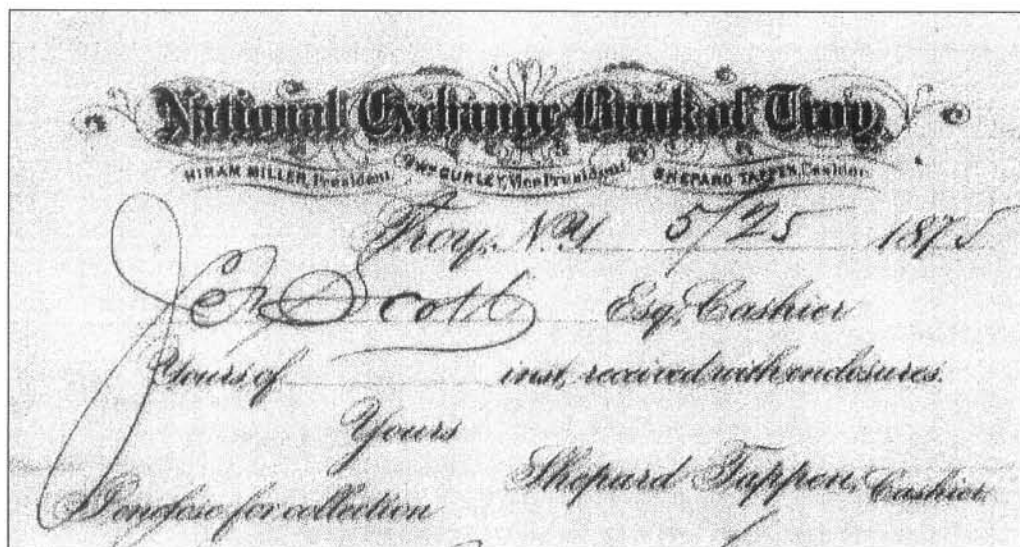 National Exchange Bank of Troy,
HIRAM MILLER, President. Wm GURLEY, Vice President. SHEPARD TAPPEN, Cashier.
Troy, N.Y. 5/25 1875
Scott Esq, Cashier
Yours of inst, received with enclosures.
Yours
Shepard Tappen, Cashier
I enclose for collection